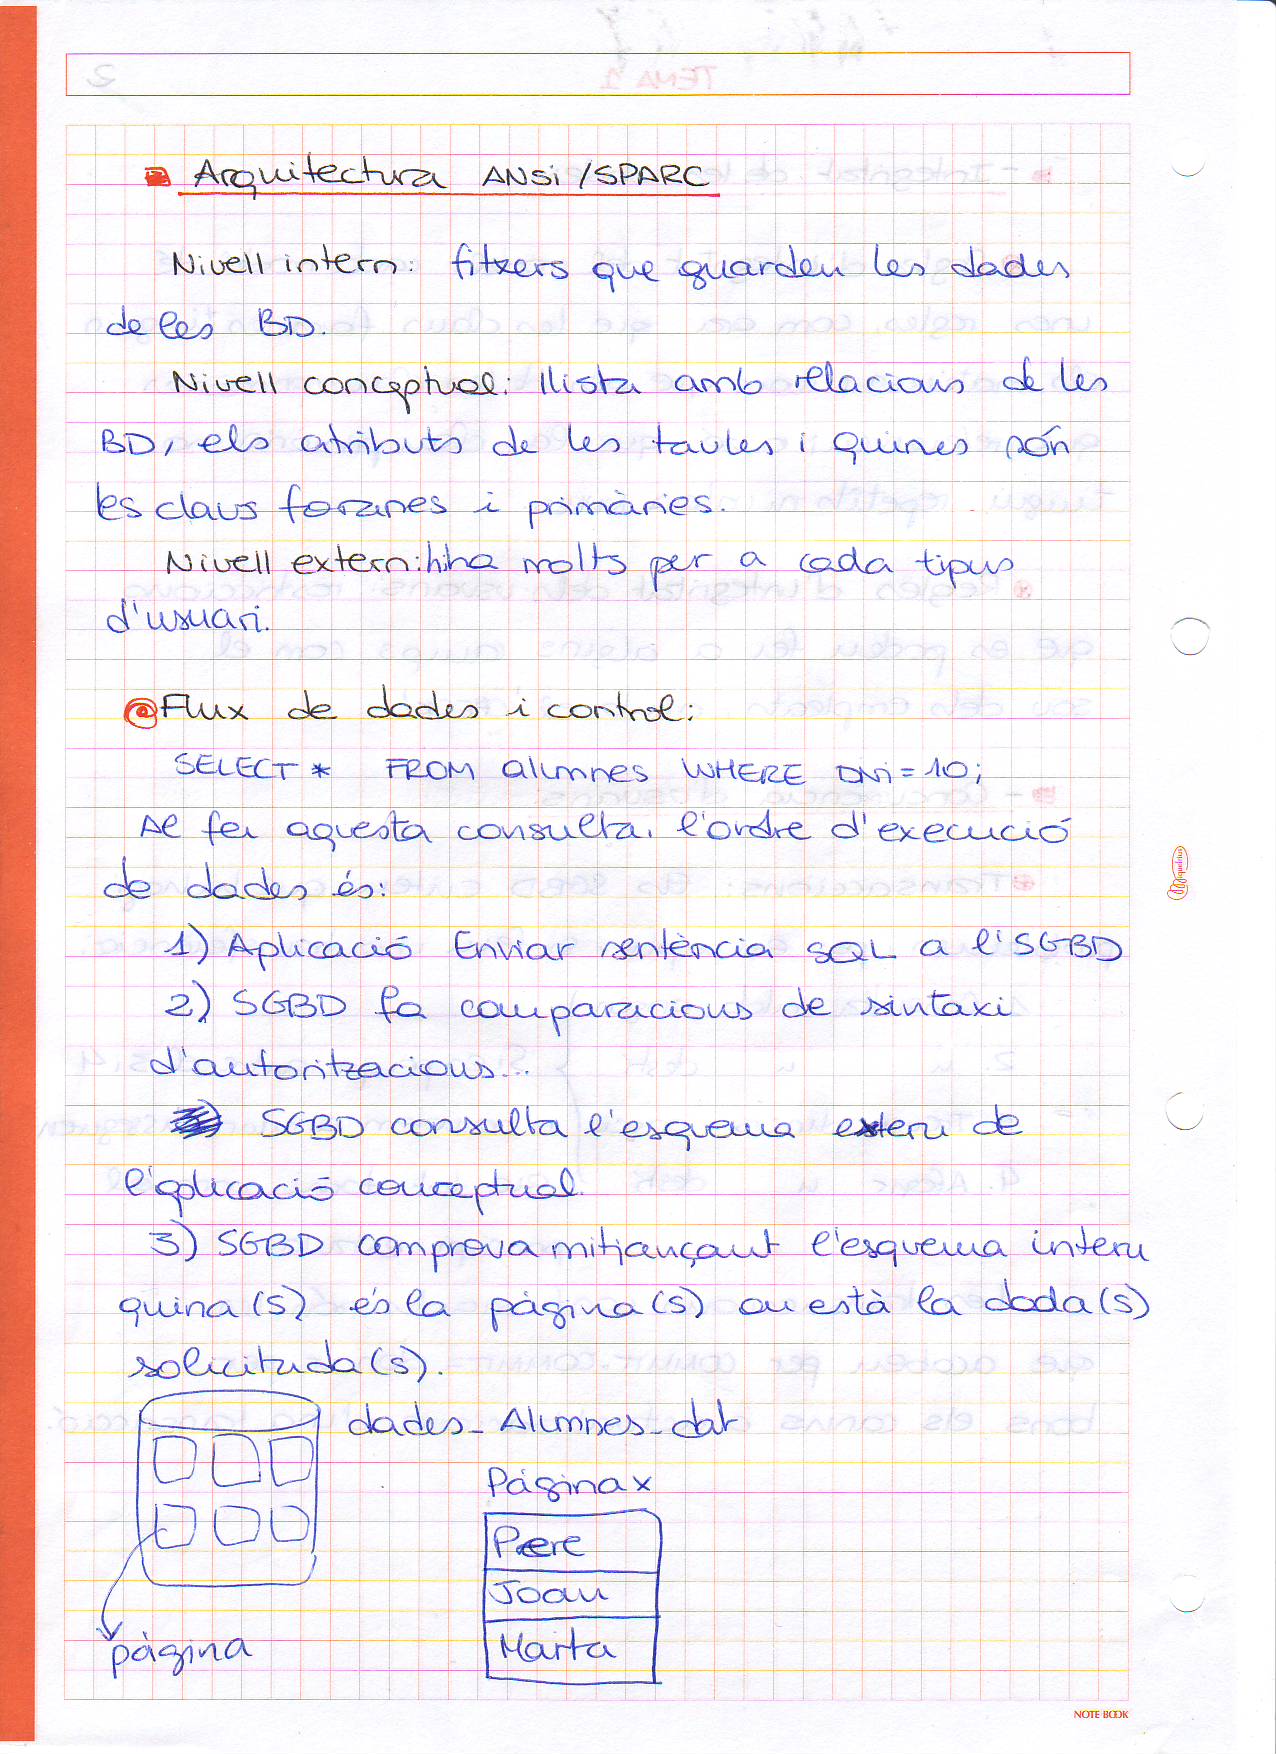 Arquitectura ANSi/SPARC
Nivell intern: fitxers que guarden les dades
de les BD.
Nivell conceptual: llista amb relacions de les
BD, els atributs de les taules i quines són
les claus foranes i primàries.
Nivell extern: hi ha molts per a cada tipus
d'usuari.
Flux de dades i control:
SELECT * FROM alumnes WHERE DNi = 10;
Al fer aquesta consulta, l'ordre d'execució
de dades és:
1) Aplicació Enviar sentència SQL a l'SGBD
2) SGBD fa comparacions de sintaxi
d'autoritzacions...
SGBD consulta l'esquema extern de
l'aplicació conceptual.
3) SGBD comprova mitjançant l'esquema intern
quina(s) és la pàgina(s) on està la dada(s)
solicituda(s).
dades_Alumnes_dat
Pàgina x
Pere
Joan
Marta
pàgina
miquelrius
NOTE BOOK